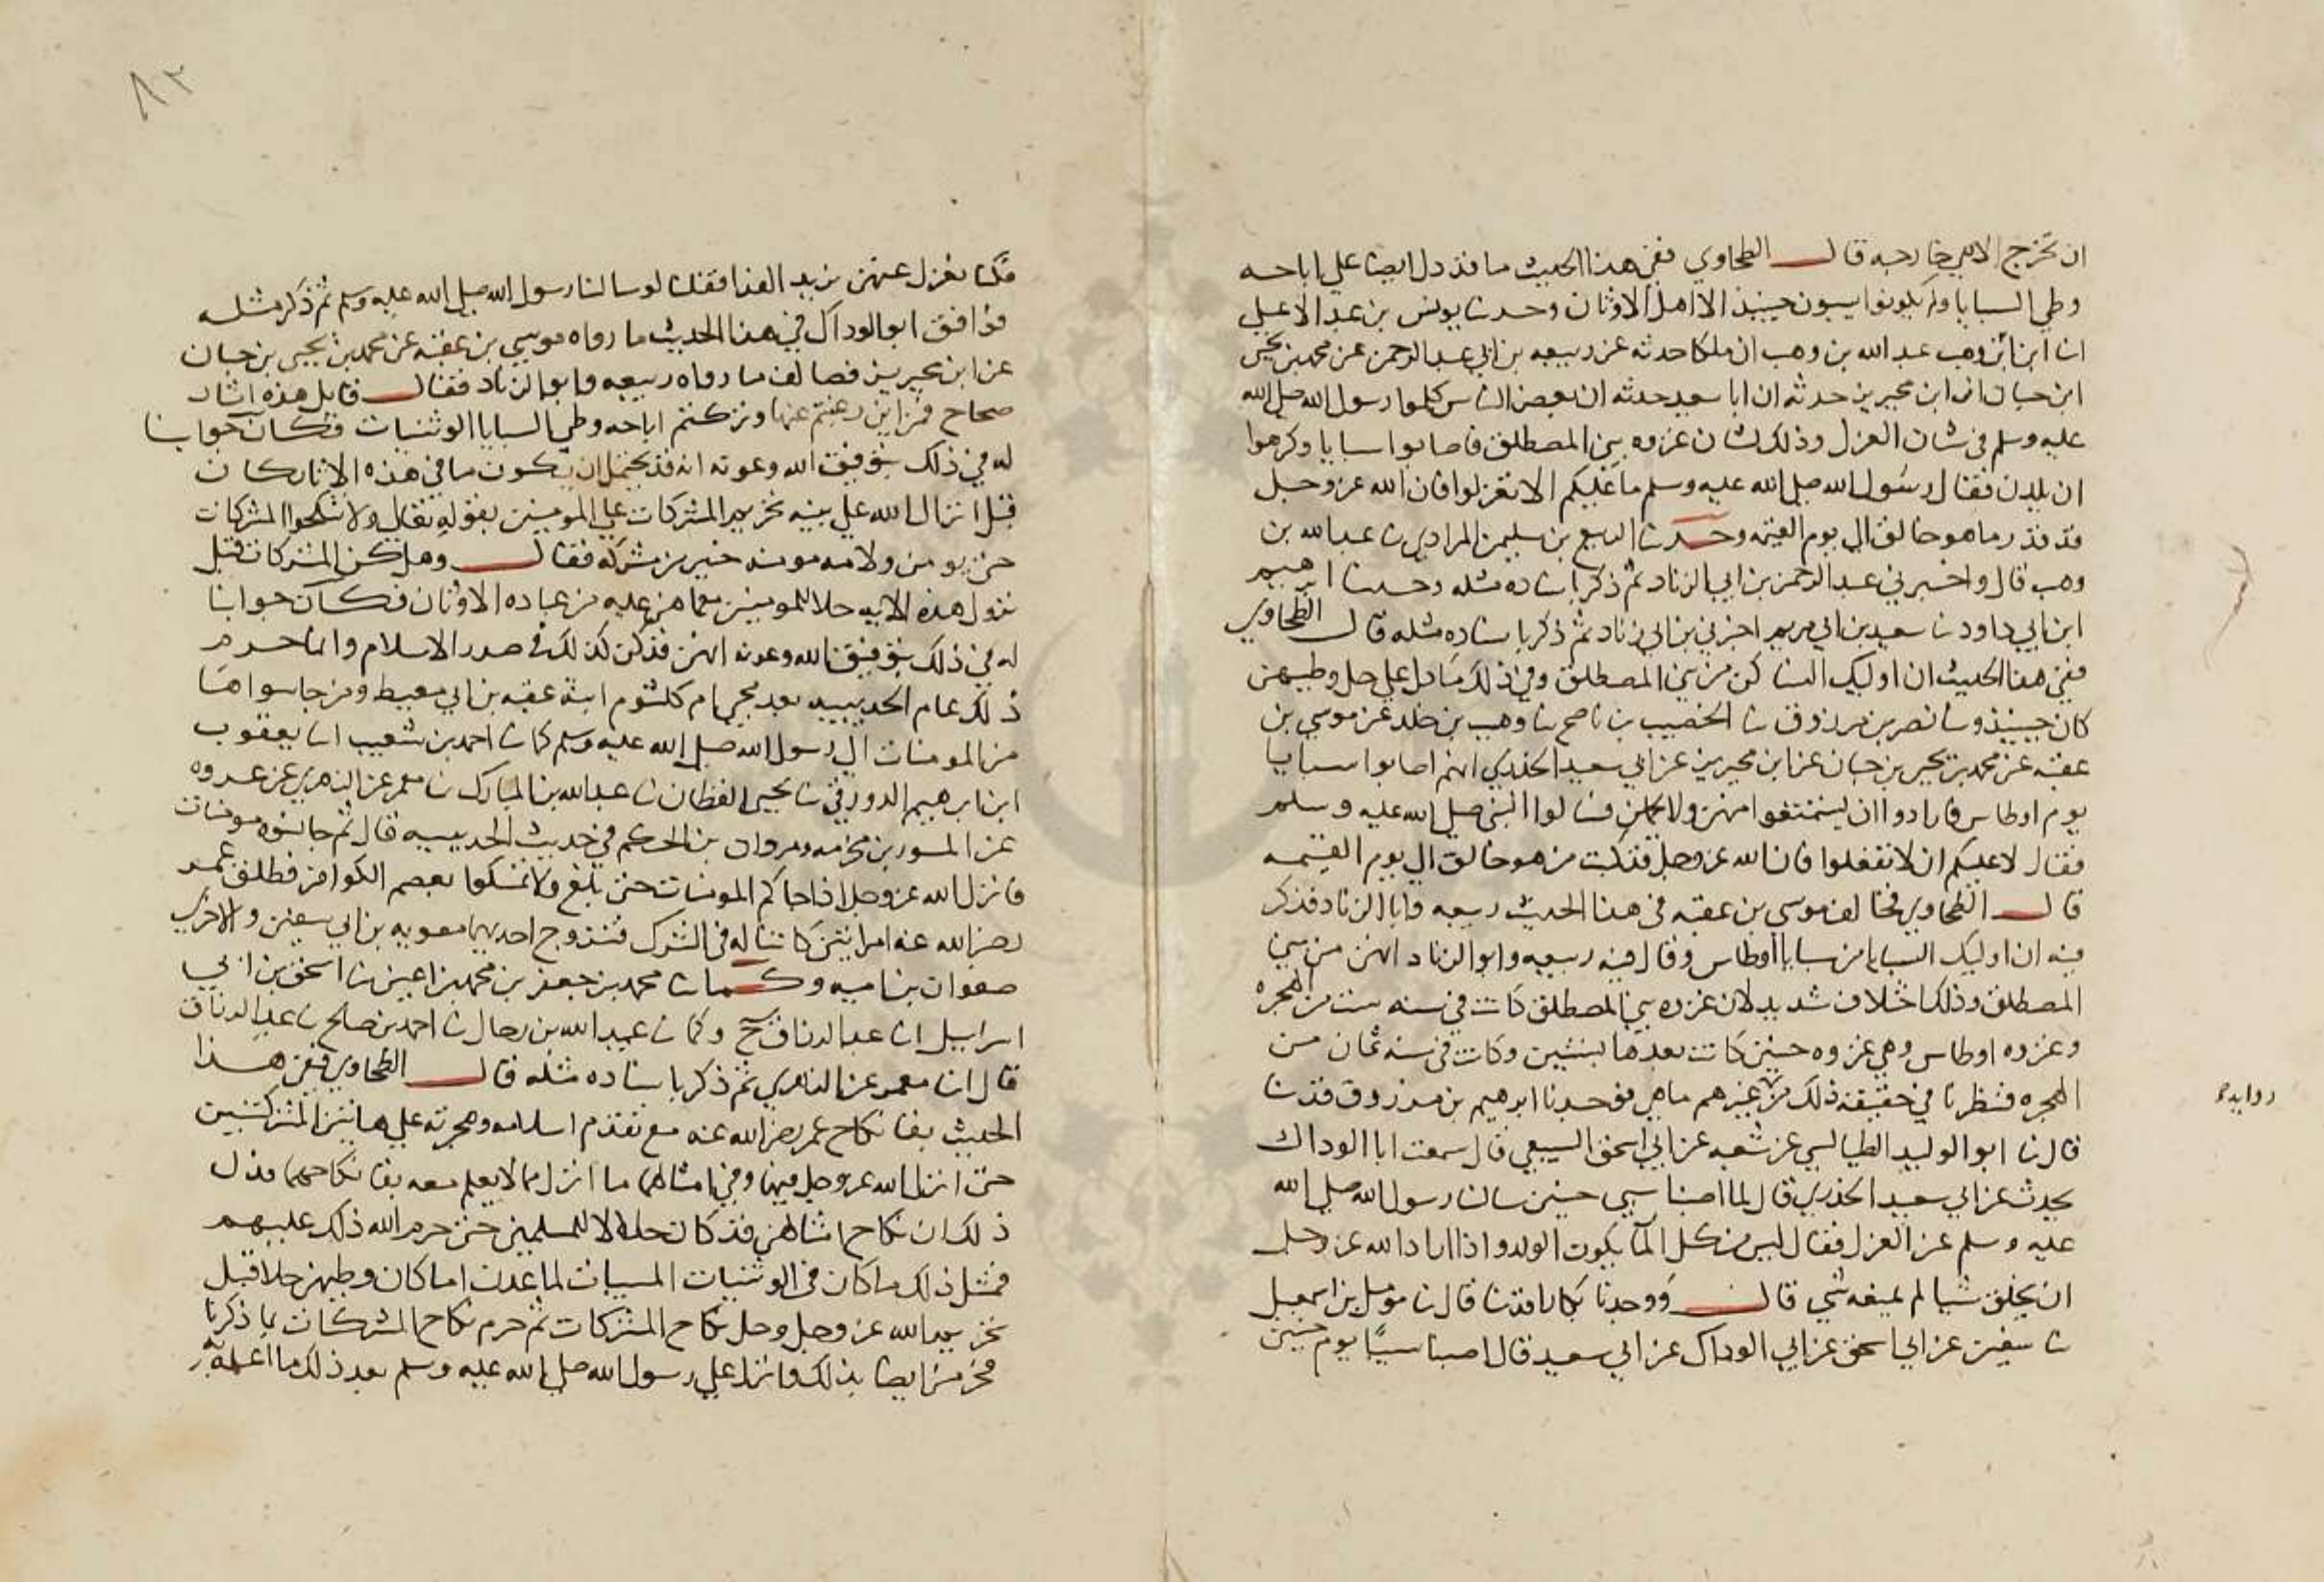 ان تخرج الا هي خارجه قال الطحاوي ففي هذا الحديث ما قد دل ايضا علي اباحه
وطي السبايا ولم يكونوا يسبون حينيذ الا اهل الاوثان وحدثنا يونس بن عبد الاعلي
انا ابن وهب عبد الله بن وهب ان ملكا حدثه عن ربيعه بن ابي عبد الرحمن عن محمد بن يحيى
ابن حبان ان ابن محيريز حدثه ان ابا سعيد حدثه ان بعض الناس كلموا رسول الله صلى الله
عليه وسلم في شان العزل وذلك لشان غزوه بني المصطلق فاصابوا سبايا وكرهوا
ان يلدن فقال رسول الله صلى الله عليه وسلم ما عليكم الا تعزلوا فان الله عز وجل
قد قدر ما هو خالق الي يوم القيمه وحدثنا الربيع بن سليمن المرادي ثنا عبد الله بن
وهب قال واخبرني عبد الرحمن بن ابي الزناد ثم ذكر باسناده مثله وحدثنا ابرهيم
ابن ابي داود ثنا سعيد بن ابي مريم اخبرني بن ابي زناد ثم ذكر باسناده مثله قال الطحاوي
ففي هذا الحديث ان اوليك النسا كن من بني المصطلق وفي ذلك ما دل علي حل وطيهن
كان حينيذ وثنا نصر بن مرزوق ثنا الخصيب بن ناصح ثنا وهيب بن خلد عن موسي بن
عقبه عن محمد بن يحيى بن حبان عن ابن محيريز عن ابي سعيد الخدري انهم اصابوا سبايا
يوم اوطاس فارادوا ان يستمتعوا منهن ولا يحملن فسالوا النبي صلى الله عليه وسلم
فقال لا عليكم ان لا تفعلوا فان الله عز وجل قد كتب من هو خالق الي يوم القيمه
قال الطحاوي فخالف موسي بن عقبه في هذا الحديث ربيعه وابا الزناد فذكر
فيه ان اوليك السبايا من سبايا اوطاس وقال فيه ربيعه وابو الزناد انهن من بني
المصطلق وذلك اختلاف شديد لان غزوه بني المصطلق كانت في سنه ست من الهجره
وغزوه اوطاس وهي غزوه حنين كانت بعدها بسنتين وكانت في سنه ثمان من
الهجره فنظرنا في حقيقه ذلك من غيرهم ما هي فوجدنا ابرهيم بن مرزوق قد ثنا
روايه
قال ثنا ابو الوليد الطيالسي عن شعبه عن ابي اسحق السبيعي قال سمعت ابا الوداك
يحدث عن ابي سعيد الخدري قال لما اصبنا سبي حنين سالنا رسول الله صلى الله
عليه وسلم عن العزل فقال ليس من كل الما يكون الولد واذا اراد الله عز وجل
ان يخلق شيا لم يمنعه شي قال ووجدنا بكارا قد ثنا قال ثنا مومل بن اسمعيل
ثنا سفين عن ابي اسحق عن ابي الوداك عن ابي سعيد قال اصبنا سبيًا يوم حنين
٨٢
فكنا نعزل عنهن نريد الفدا فقلنا لو سالنا رسول الله صلى الله عليه وسلم ثم ذكر مثله
فوافق ابو الوداك في هذا الحديث ما رواه موسي بن عقبه عن محمد بن يحيى بن حبان
عن ابن محيريز فصالف ما رواه ربيعه وابو الزناد فقال قايل هذه اثار
صحاح فمن اين رغبتم عنها وتركتم اباحه وطي السبايا الوثنيات فكان جوابنا
له في ذلك بتوفيق الله وعونه انه قد يحتمل ان يكون ما في هذه الاثار كان
قبل انزال الله علي نبيه تحريم المشركات علي المومنين بقوله تعالي ولا تنكحوا المشركات
حتى يومن ولامه مومنه خير من مشركه فقال وهل كن المشركات قبل
نزول هذه الايه حلالا للمومنين مما هن عليه من عباده الاوثان فكان جوابنا
له في ذلك بتوفيق الله وعونه انهن قد كن كذلك في صدر الاسلام وانما حرم
ذلك عام الحديبيه بعد مجي ام كلثوم ابنة عقبه بن ابي معيط ومن جا سواها
من المومنات الي رسول الله صلى الله عليه وسلم كما ثنا احمد بن شعيب انا يعقوب
ابن ابرهيم الدورقي ثنا يحيى القطان ثنا عبد الله بن المبارك ثنا معمر عن الزهري عن عروه
عن المسور بن مخرمه ومروان بن الحكم في حديث الحديبيه قال ثم جا نسوه مومنات
فانزل الله عز وجل اذا جاكم المومنات حتى بلغ ولا تمسكوا بعصم الكوافر فطلق عمر
رضي الله عنه امراتين كانتا له في الشرك فتزوج احديهما معويه بن ابي سفين والاخري
صفوان بن اميه وكما ثنا محمد بن جعفر بن محمد بن اعين ثنا اسحق بن ابي
اسرايل انا عبد الرزاق ح وكما ثنا عبيد الله بن رحال ثنا احمد بن صالح ثنا عبد الرزاق
قال انا معمر عن الزهري ثم ذكر باسناده مثله قال الطحاوي ففي هذا
الحديث بقا نكاح عمر رضي الله عنه مع تقدم اسلامه وهجرته علي هاتين المشركتين
حتى انزل الله عز وجل فيهما وفي امثالهما ما انزل مما لا يعلم معه بقا نكاحهما فدل
ذلك ان نكاح امثالهن قد كان حلالا للمسلمين حتى حرم الله ذلك عليهم
فمثل ذلك ما كان في الوثنيات المسبيات لما عدت اما كان وطيهن حلالا قبل
تحريم الله عز وجل وحل نكاح المشركات ثم حرم نكاح المشركات بما ذكرنا
فحرمن ايضا بذلك وانزل علي رسول الله صلى الله عليه وسلم بعد ذلك ما اعلم به